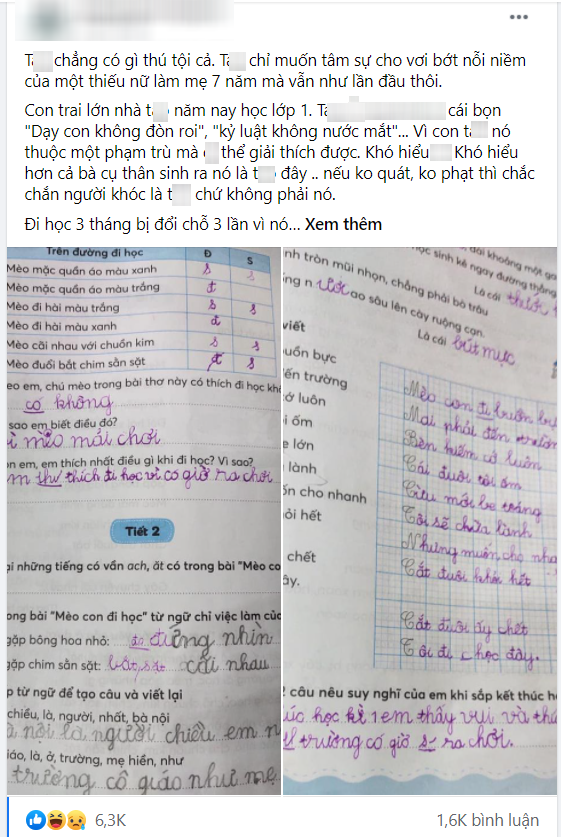 T chẳng có gì thú tội cả. T chỉ muốn tâm sự cho vơi bớt nỗi niềm
của một thiếu nữ làm mẹ 7 năm mà vẫn như lần đầu thôi.
Con trai lớn nhà t năm nay học lớp 1. T cái bọn
"Dạy con không đòn roi", "kỷ luật không nước mắt"... Vì con t nó
thuộc một phạm trù mà thể giải thích được. Khó hiểu Khó hiểu
hơn cả bà cụ thân sinh ra nó là t đây .. nếu ko quát, ko phạt thì chắc
chắn người khóc là t chứ không phải nó.
Đi học 3 tháng bị đổi chỗ 3 lần vì nó... Xem thêm
Trên đường đi học Đ S
Mèo mặc quần áo màu xanh s s
Mèo mặc quần áo màu trắng đ
Mèo đi hài màu trắng s s
Mèo đi hài màu xanh đ
Mèo cãi nhau với chuồn kim s s
Mèo đuổi bắt chim sẻ s
eo em, chú mèo trong bài thơ này có thích đi học kh
có không
sao em biết điều đó?
mèo mải chơi
n em, em thích nhất điều gì khi đi học? Vì sao?
m thích đi học vì có giờ ra chơi
Tiết 2
ại những tiếng có vần ach, ăt có trong bài "Mèo co
ong bài "Mèo con đi học" từ ngữ chỉ việc làm củ
gặp bông hoa nhỏ: đứng nhìn
gặp chim sẻ: cãi nhau
p từ ngữ để tạo câu và viết lại
chiều, là, người, nhất, bà nội
à nội là người chiều em n
iáo, là, ở, trường, mẹ hiền, như
trường cô giáo như mẹ
dài khoảng một ga
học sinh kẻ ngay đường thẳng
Là cái thước
ình tròn mũi nhọn, chẳng phải bò trâu
ống n ước ao sâu lên cày ruộng cạn.
Là cái bút mực
viết
uồn bực
ến trường
ớ luôn
i ốm
e lớn
lành
ốn cho nhanh
ỏi hết
chết
ây.
Mèo con đi buồn bự
Mai phải đến trườn
Bèn kiếm cớ luôn
Cái đuôi tôi ốm
Cừu mới be toáng
Tôi sẽ chữa lành
Nhưng muốn cho nha
Cắt đuôi khỏi hết
Cắt đuôi ấy chết
Tôi đi học đây.
2 câu nêu suy nghĩ của em khi sắp kết thúc h
úc học kì 1 em thấy vui và th
trường có giờ ra chơi.
6,3K 1,6K bình luận